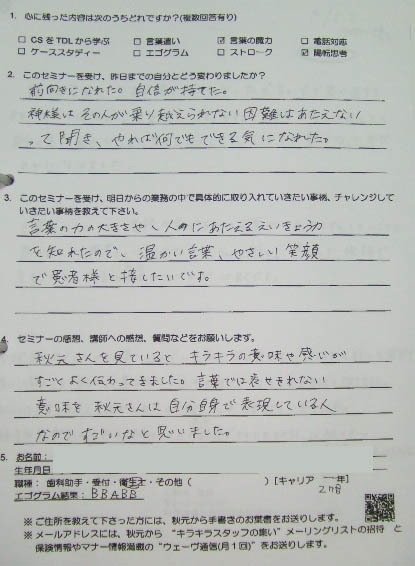 1. 心に残った内容は次のうちどれですか?(複数回答有り)
□ CSをTDLから学ぶ □ 言葉遣い ☑ 言葉の魔力 □ 電話対応
□ ケーススタディー □ エゴグラム □ ストローク ☑ 陽転思考
2. このセミナーを受け、昨日までの自分とどう変わりましたか?
前向きになれた。自信が持てた。
神様は その人が乗り越えられない 困難はあたえない
って聞き、やれば何でもできる気になれた。
3. このセミナーを受け、明日からの業務の中で具体的に取り入れていきたい事柄、チャレンジして
いきたい事柄を教えて下さい。
言葉の力の大きさや、人のにあたえるえいきょう力
を知れたので、温かい言葉、やさしい笑顔
で患者様と接したいです。
4. セミナーの感想、講師への感想、質問などをお願いします。
秋元さんを見ていると キラキラの意味や感じが
すごくよく伝わってきました。言葉では表せきれない
意味を 秋元さんは自分自身で表現している人
なので すごいなと思いました。
5. お名前:
生年月日
職種: 歯科助手・受付・衛生士・その他( )[キャリア 一年]
エゴグラム結果: BBABB
※ ご住所を教えて下さった方には、秋元から手書きのお葉書をお送りします。
※ メールアドレスには、秋元から "キラキラスタッフの集い" メーリングリストの招待 と
保険情報やマナー情報満載の "ウェーヴ通信(月1回)" をお送りします。